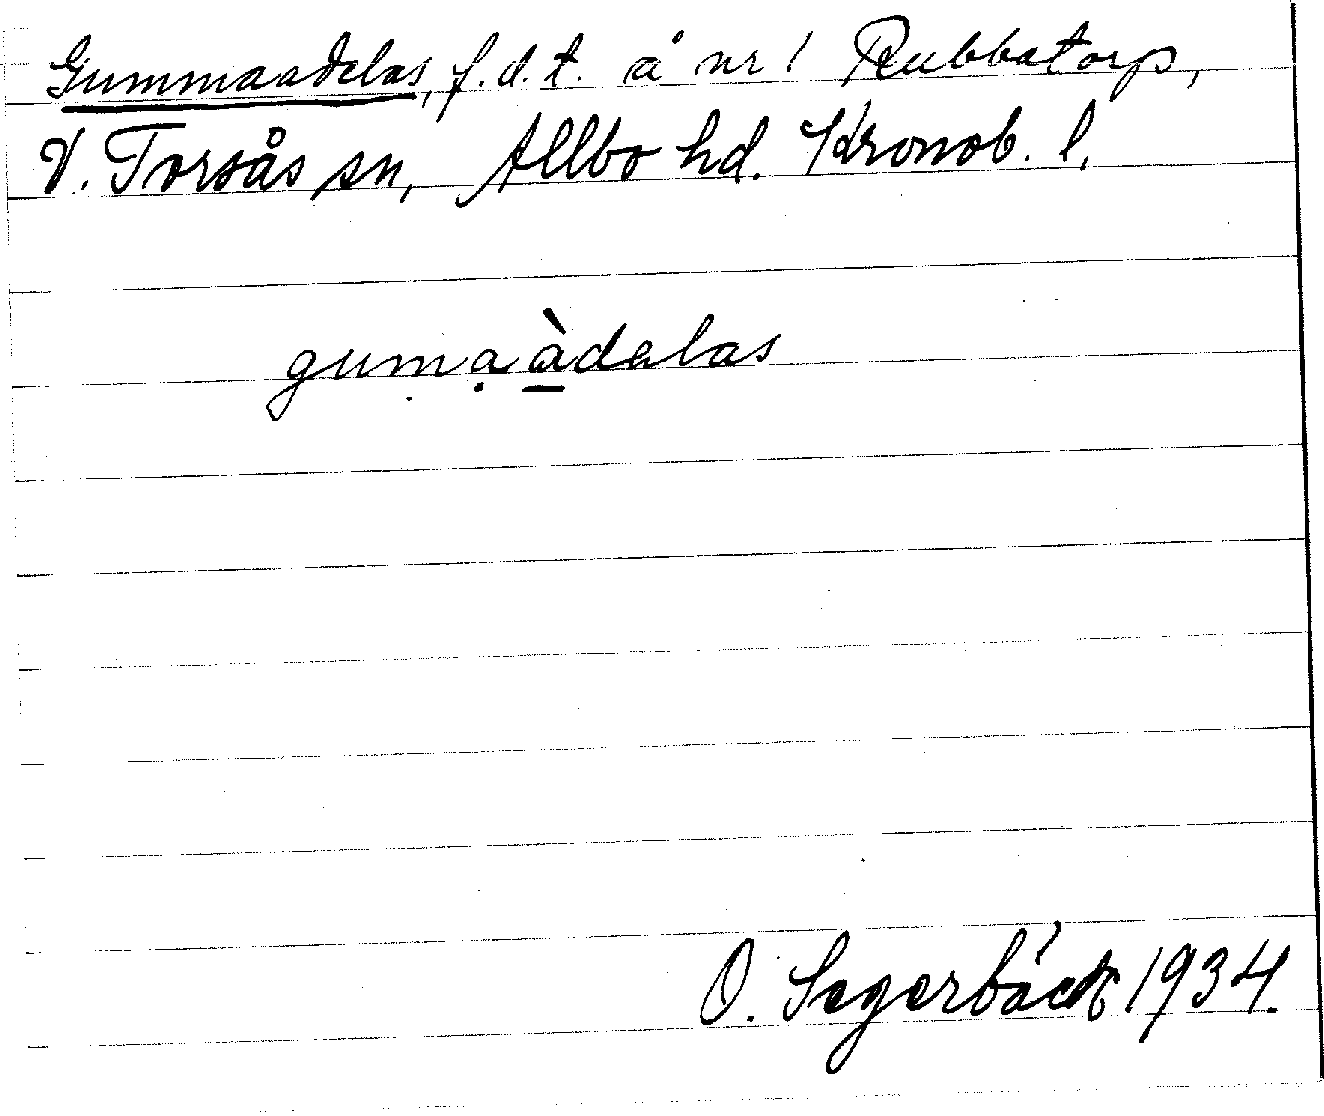 Gummaadelas, f.d.t. å nr 1 Rubbatorp,
V. Torsås sn, Allbo hd. Kronob. l.
gumạàdelas
O. Segerbäck 1934.